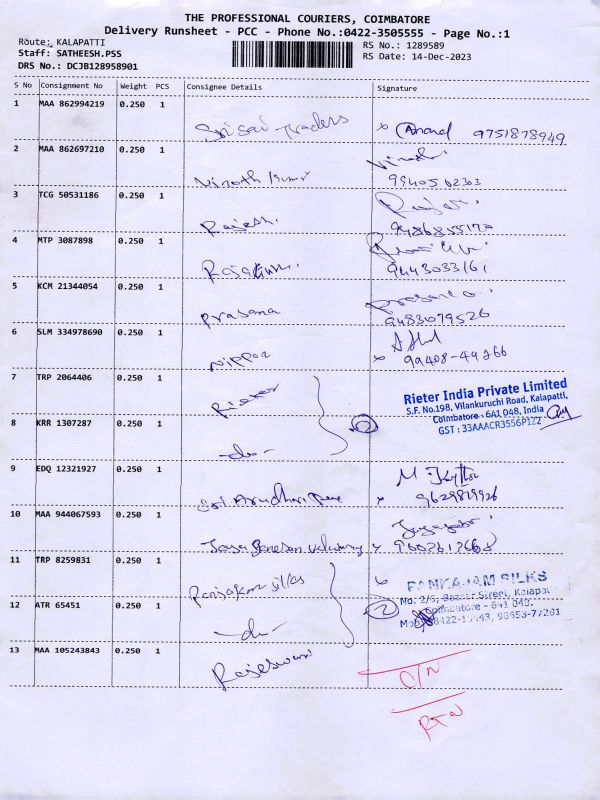 THE PROFESSIONAL COURIERS, COIMBATORE
Delivery Runsheet - PCC - Phone No.:0422-3505555 - Page No.:1
Route: KALAPATTI
Staff: SATHEESH.PSS
DRS No.: DCJB128958901
RS No.: 1289589
RS Date: 14-Dec-2023
S No Consignment No Weight PCS Consignee Details Signature
1 MAA 862994219 0.250 1 Sri Sai Traders x Anand 9751878949
2 MAA 862697210 0.250 1 Vinoth Kumar
3 TCG 50531186 0.250 1 Rajesh
4 MTP 3087898 0.250 1 9443033161
5 KCM 21344054 0.250 1 Prasana 9483079526
6 SLM 334978690 0.250 1 Nippon x 99408-49266
7 TRP 2064406 0.250 1 Rieter
Rieter India Private Limited
S.F. No.198, Vilankuruchi Road, Kalapatti,
Coimbatore - 641 048, India
GST : 33AAACR3556P1ZZ
8 KRR 1307287 0.250 1 -do- 2
9 EDQ 12321927 0.250 1 Sri
10 MAA 944067593 0.250 1
11 TRP 8259831 0.250 1 silks
PANKAJAM SILKS
No: 2/6, Bazaar Street, Kalapat
Coimbatore - 641 048.
12 ATR 65451 0.250 1 -do- 2
13 MAA 105243843 0.250 1 Rajeswari
C/N
RTN